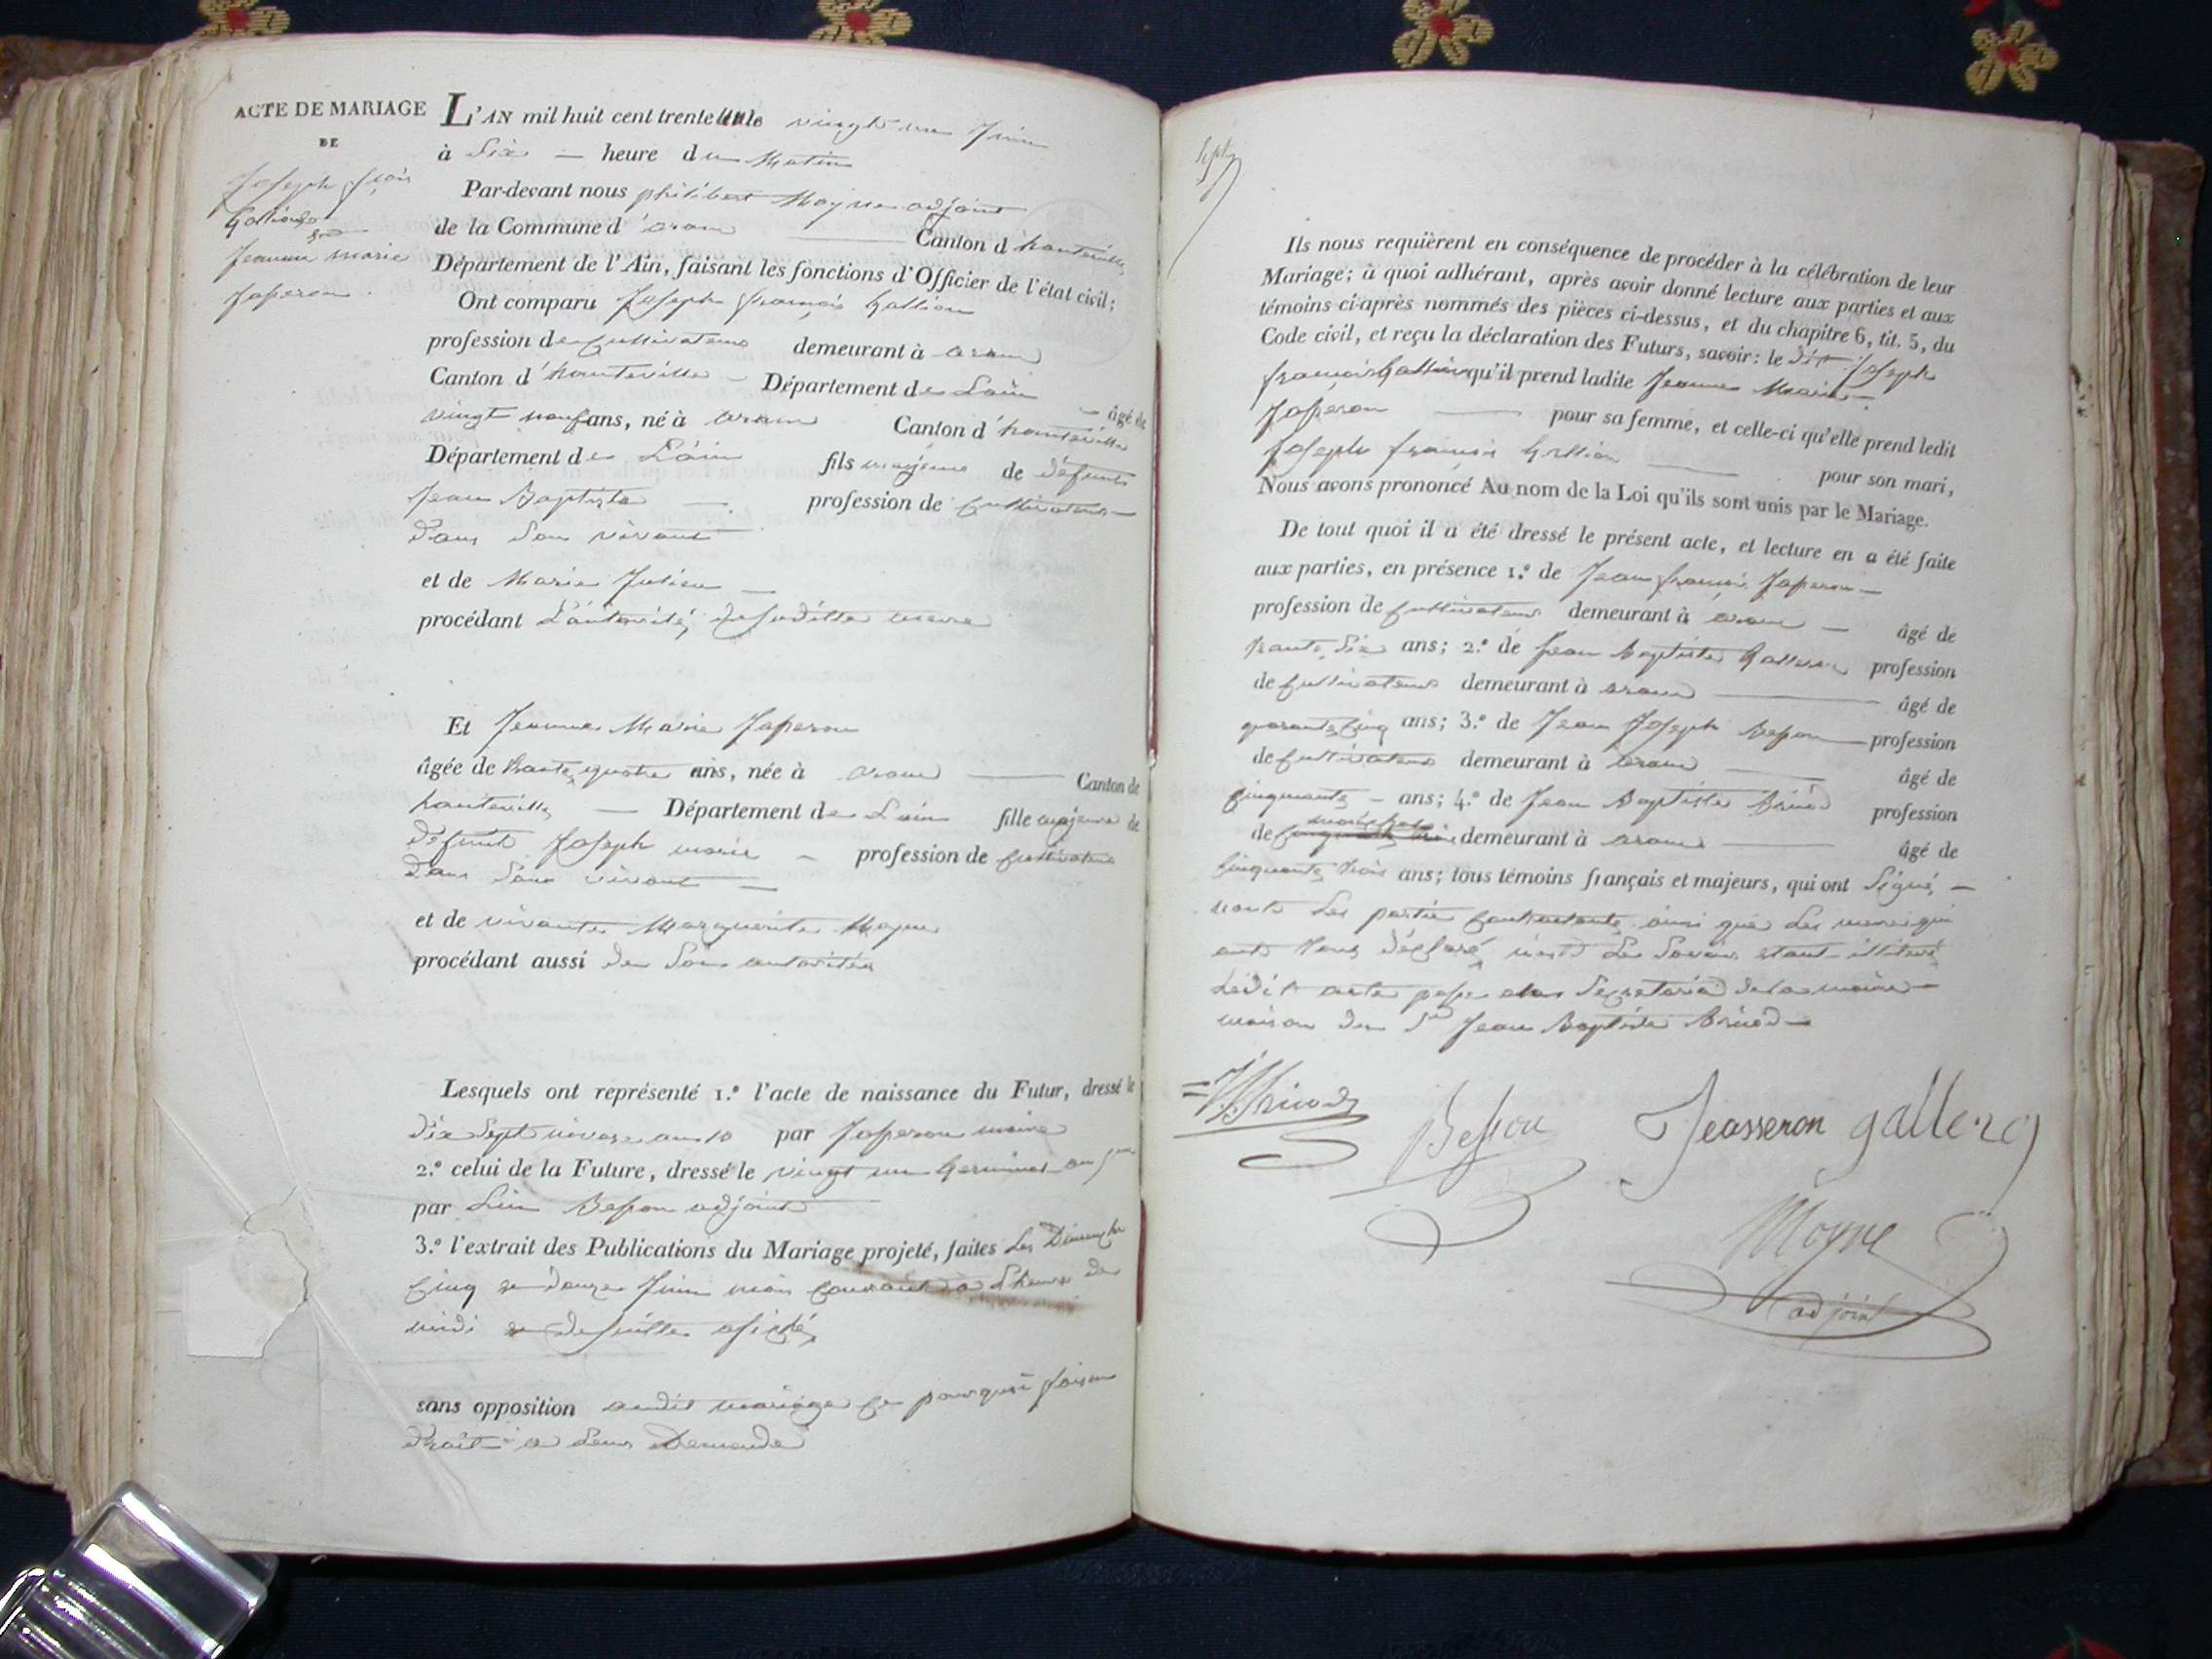 ACTE DE MARIAGE
DE
Joseph fçois
Gallion
Jeanne marie
Jasseron.
L'AN mil huit cent trente un le vingt un Juin
à Six — heure du Matin
Par-devant nous philibert Moyne adjoint
de la Commune d'aran — Canton d'hauteville
Département de l'Ain, faisant les fonctions d'Officier de l'état civil;
Ont comparu Joseph françois Gallion
profession de Cultivateur demeurant à aran
Canton d'hauteville — Département de Lain — âgé de
vingt neuf ans, né à aran Canton d'hauteville
Département de Lain fils majeure de défunt
Jean Baptiste — profession de Cultivateur
dans son vivant
et de Marie Julien
procédant L'autorité, de saditte mere
Et Jeanne Marie Jasseron
âgée de trante quatre ans, née à aran — Canton de
hauteville — Département de Lain fille majeure de
défunt Joseph marie — profession de Cultivateur
dans sons vivant —
et de vivante Marguerite Moyne
procédant aussi de son autoritée
Lesquels ont représenté 1.º l'acte de naissance du Futur, dressé le
dix Sept nivose an 10 par Jasseron maire
2.º celui de la Future, dressé le vingt un Germinal an 5
par Besson adjoint
3.º l'extrait des Publications du Mariage projeté, faites les Dimanche
Cinq et douze Juin mois Courant à L'heure de
midi et desuitte afiché
sans opposition audit mariage Ce pourquoi faisan
droit à leur Demande
Ils nous requièrent en conséquence de procéder à la célébration de leur
Mariage; à quoi adhérant, après avoir donné lecture aux parties et aux
témoins ci-après nommés des pièces ci-dessus, et du chapitre 6, tit. 5, du
Code civil, et reçu la déclaration des Futurs, savoir: le dit Joseph
françois Gallion qu'il prend ladite Jeanne Marie
Jasseron — pour sa femme, et celle-ci qu'elle prend ledit
Joseph françois Gallion — pour son mari,
Nous avons prononcé Au nom de la Loi qu'ils sont unis par le Mariage.
De tout quoi il a été dressé le présent acte, et lecture en a été faite
aux parties, en présence 1.º de Jean françois Jasseron —
profession de Cultivateur demeurant à aran — âgé de
trante Six ans; 2.º de Jean Baptiste Gallion profession
de Cultivateur demeurant à aran — âgé de
quarante Cinq ans; 3.º de Jean Joseph Besson profession
de Cultivateur demeurant à aran — âgé de
Cinquante — ans; 4.º de Jean Baptiste Brisod profession
de demeurant à aran — âgé de
Cinquante trois ans; tous témoins français et majeurs, qui ont Signé, —
nont Les partie Contractante, ainsi que Les mere qui
ont tous déclaré Le Savoir etant illiteré
Ledit acte passe au Secretaria de la mairie
maison du Sr Jean Baptiste Brisod —
Besson
Jeasseron
gallion
Moyne
adjoint